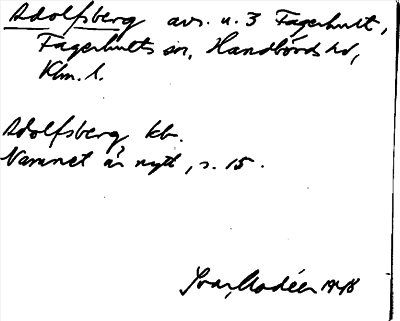 Adolfsberg avs. u. 3 Fagerhult,
Fagerhults sn, Handbörds hd,
Klm. l.
Adolfsberg kb.
Namnet är nytt, s. 15.
Ivar Modéer 1948